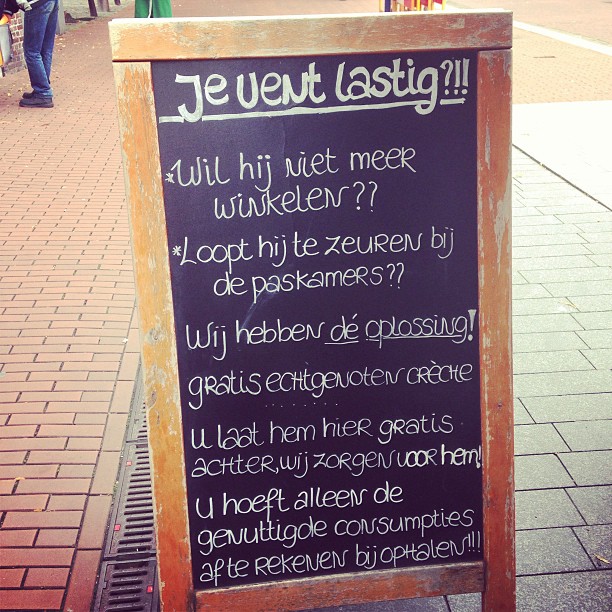 Je vent lastig?!!
*Wil hij niet meer
winkelen??
*Loopt hij te zeuren bij
de paskamers??
Wij hebben dé oplossing!
gratis echtgenoten crèche
u laat hem hier gratis
achter, wij zorgen voor hem!
u hoeft alleen de
genuttigde consumpties
af te rekenen bij ophalen!!!